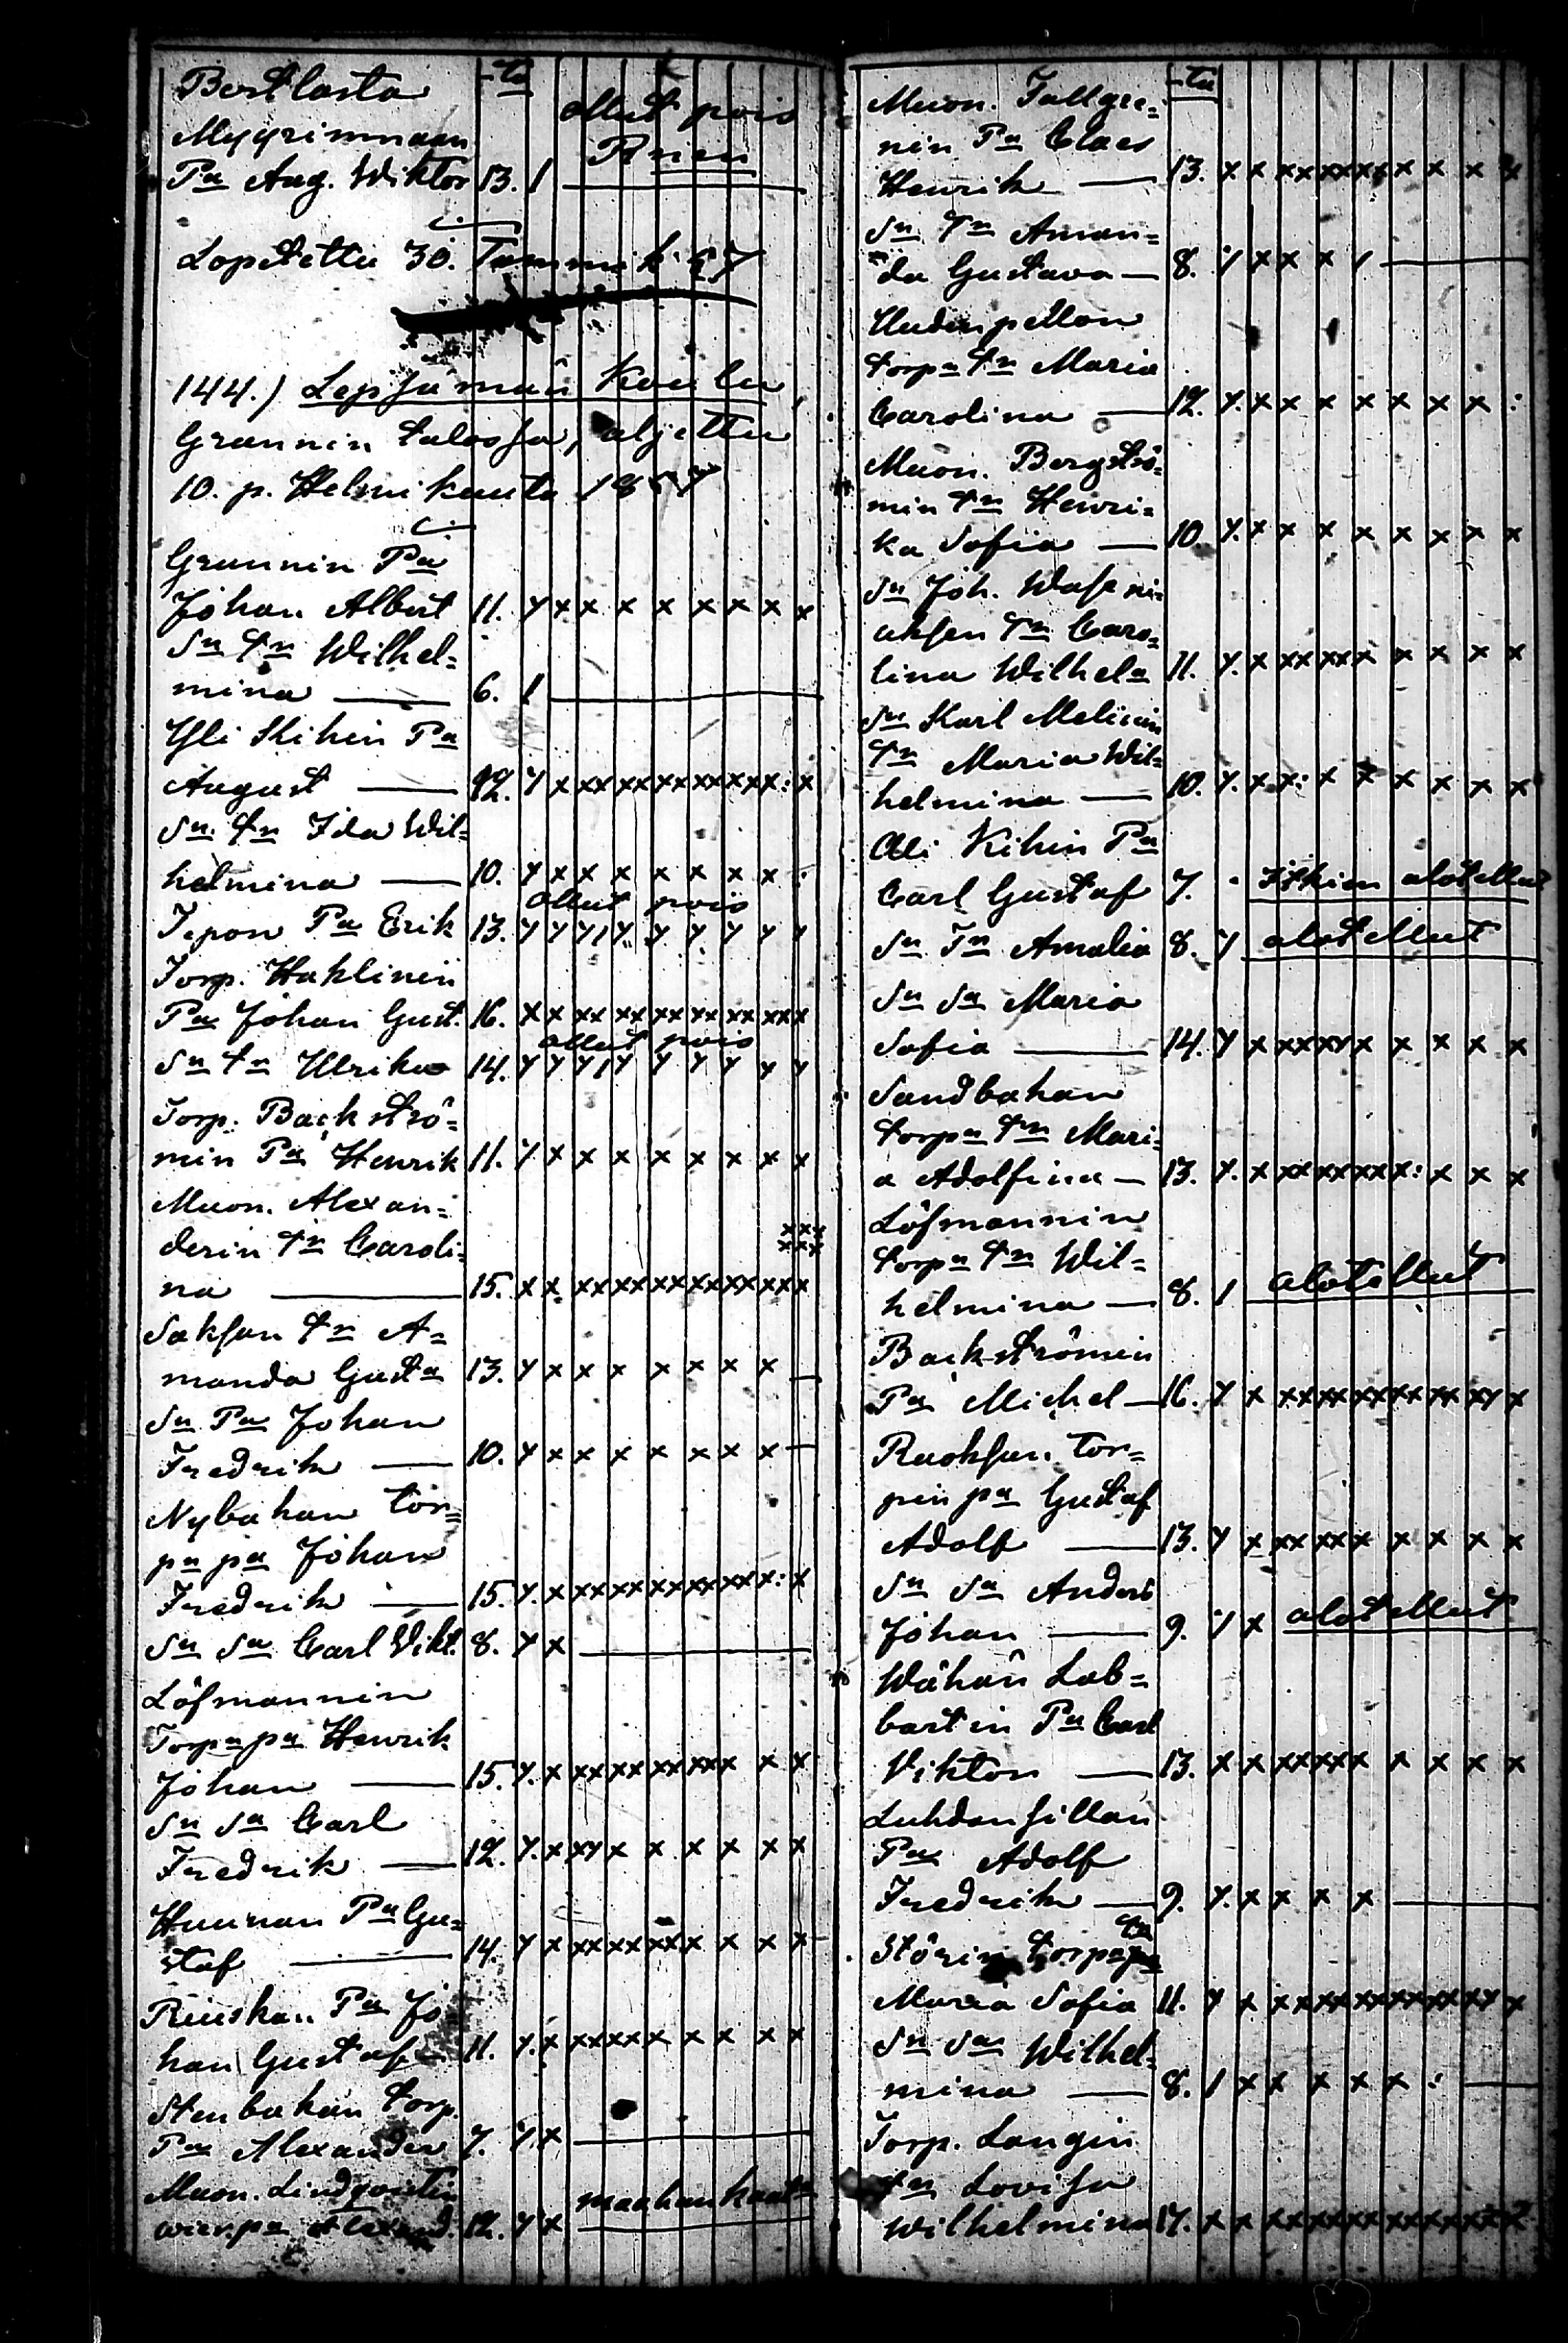 Bertlasta -ta
Myyrinmaan ollut pois
Pa Aug. Wiktor 13. /
Lopetettu 30. Tammik. 57
144.) Lepsämän Koulu,
Grannin talossa, aljettu
10. p. Helmikuuta 1857
Grannin Pa
Johan Albert 11. y x x x x x x x x
Sn Tn Wilhel=
mina — 6. /
Yli Kihin Pa
August — 12. y x xx xx xx xx xx x: x
Sn. Tn Ida Wil=
helmina — 10. y x x x x x x x :
ollut pois
Pa Erik 13. y y y / y y y y y y
Torp. Haklinin
Pa Johan Gust. 16. x x xx xx xx xx xx xx x
ollut pois
Sn Tn Ulrika 14. y y y / y y y y y y
Torp. Backströ=
min Pa Henrik 11. y x x x x x x x x
Muon. Alexan=
derin Tn Caroli= xxx
xxx
na — 15. x x xx xx xx xx xx xx x
Saksan Tn A=
manda Gusta 13. y x x x x x x x —
Sn Pa Johan
Fredrik — 10. y x x x x x x x —
Nybakan tor=
pn pa Johan
Fredrik — 15. y. x xx xx xx xx xx x: x
Sn Sa Carl Vikt. 8. y x —
Löfmannin
Torpn pa Henrik
Johan — 15. y. x xx xx xx xx x x x
Sn Sa Carl
Fredrik — 12. y. x xy x x x x x x
Pa Gu=
staf — 14. y x xx xx xx x x x x
Pa Jo=
han Gustaf — 11. y. x xx xx x x x x x
Stenbakan torp.
Pa Alexander 7. y. x —
Muon. Lindqvistin
pa 12. y x
-ta
Muon. Tallgre=
nin Pa Claes
Henrik — 13. x x xx xx xx x x x x
Sn Tn Aman=
da Gustava — 8. y x x x / —
Uudenpellon
torpn Tn Maria
Carolina — 12. y. x x x x x x x :
Muon. Bergströ=
min Tn Henri=
ka Sofia — 10. y. x x x x x x x x
Sn Joh.
Tn Caro=
lina Wilhela 11. y. x xx xx x x x x x
Sn Karl Melinin
Tn Maria Wil=
helmina — 10. y. x x: x x x x x x
Ali Kihin Pa
Carl Gustaf 7. · alotellut
Sn Tn Amalia 8. y alotellut
Sn Sa Maria
Sofia — 14. y x xx xy x x x x x
Sandbakan
torpn Tn Mari=
a Adolfina — 13. y. x xx xx xx x: x x x
Löfmannin
torpn Tn Wil=
helmina — 8. / alotellut
Backströmin
Pa Michel — 16. y x xx xx xx xx xx xy x
tor=
pin pa Gustaf
Adolf — 13. y x xx xx x x x x x
Sn Sa Anders
Johan — 9. y x alotellut
Wähän Lab=
bartin Pa Carl
Viktor — 13. x x xx xx x x x x x
Luhdansillan
Pa Adolf
Fredrik — 9. y. x x x x —
Störin torpn
Maria Sofia 11. y x xx xx xx xx xx xy x
Sn Sa Wilhel=
mina — 8. / x x x x x : —
Torp. Langin
Tn Lovisa
Wilhelmina 17. x x xx xx xx xx xx xx